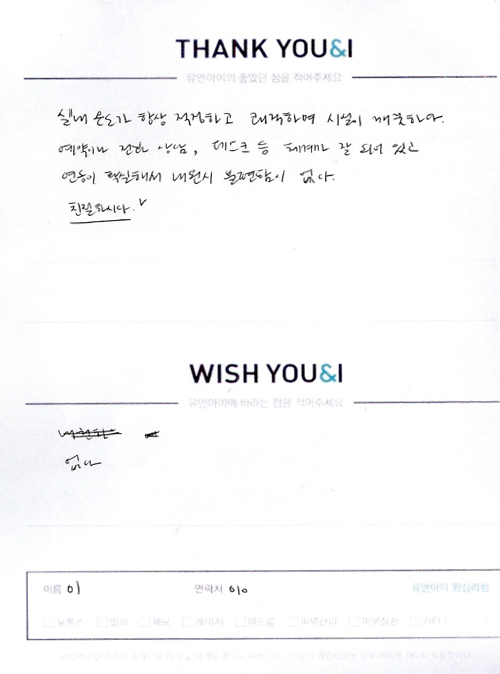 THANK YOU&I
유앤아이의 좋았던 점을 적어주세요
실내 온도가 항상 적정하고 쾌적하며 시설이 깨끗하다.
예약이나 전화 상담, 데스크 등 체계가 잘 되어 있고
연동이 확실해서 내원시 불편함이 없다.
친절하시다.
WISH YOU&I
유앤아이에 바라는 점을 적어주세요
없다
이름 이
연락처 010
유앤아이 왕십리점
보톡스 필러 제모 레이저 여드름 피부관리 피부질환 기타 (